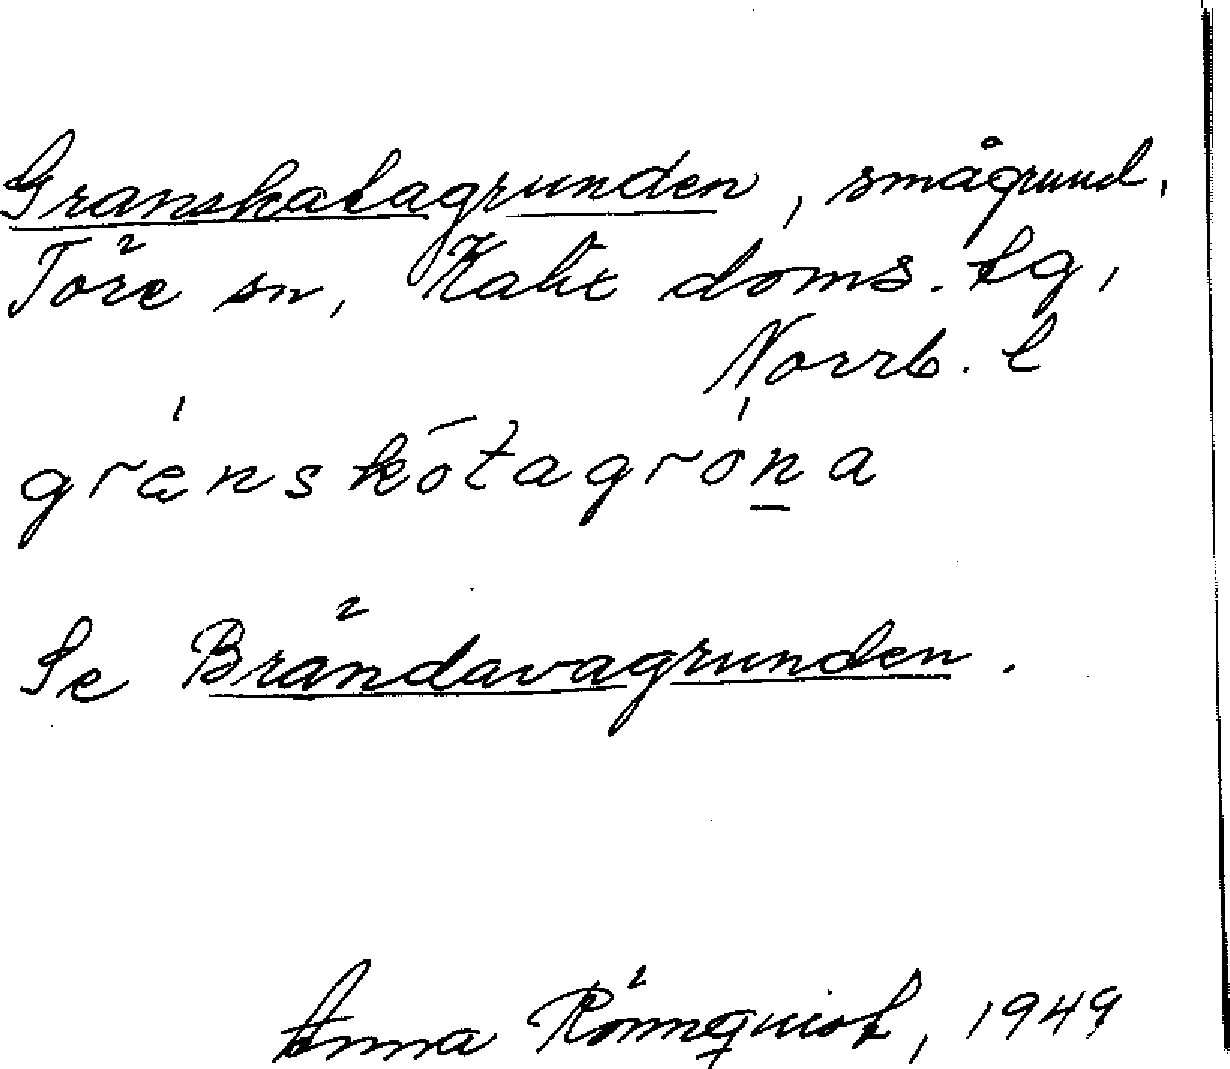 Granskatagrunden, smågrund.
Töre sn, Kalix doms. tg,
Norrb. l
grænskōtagróna
Se Brändavagrunden.
Anna Rönnquist, 1949